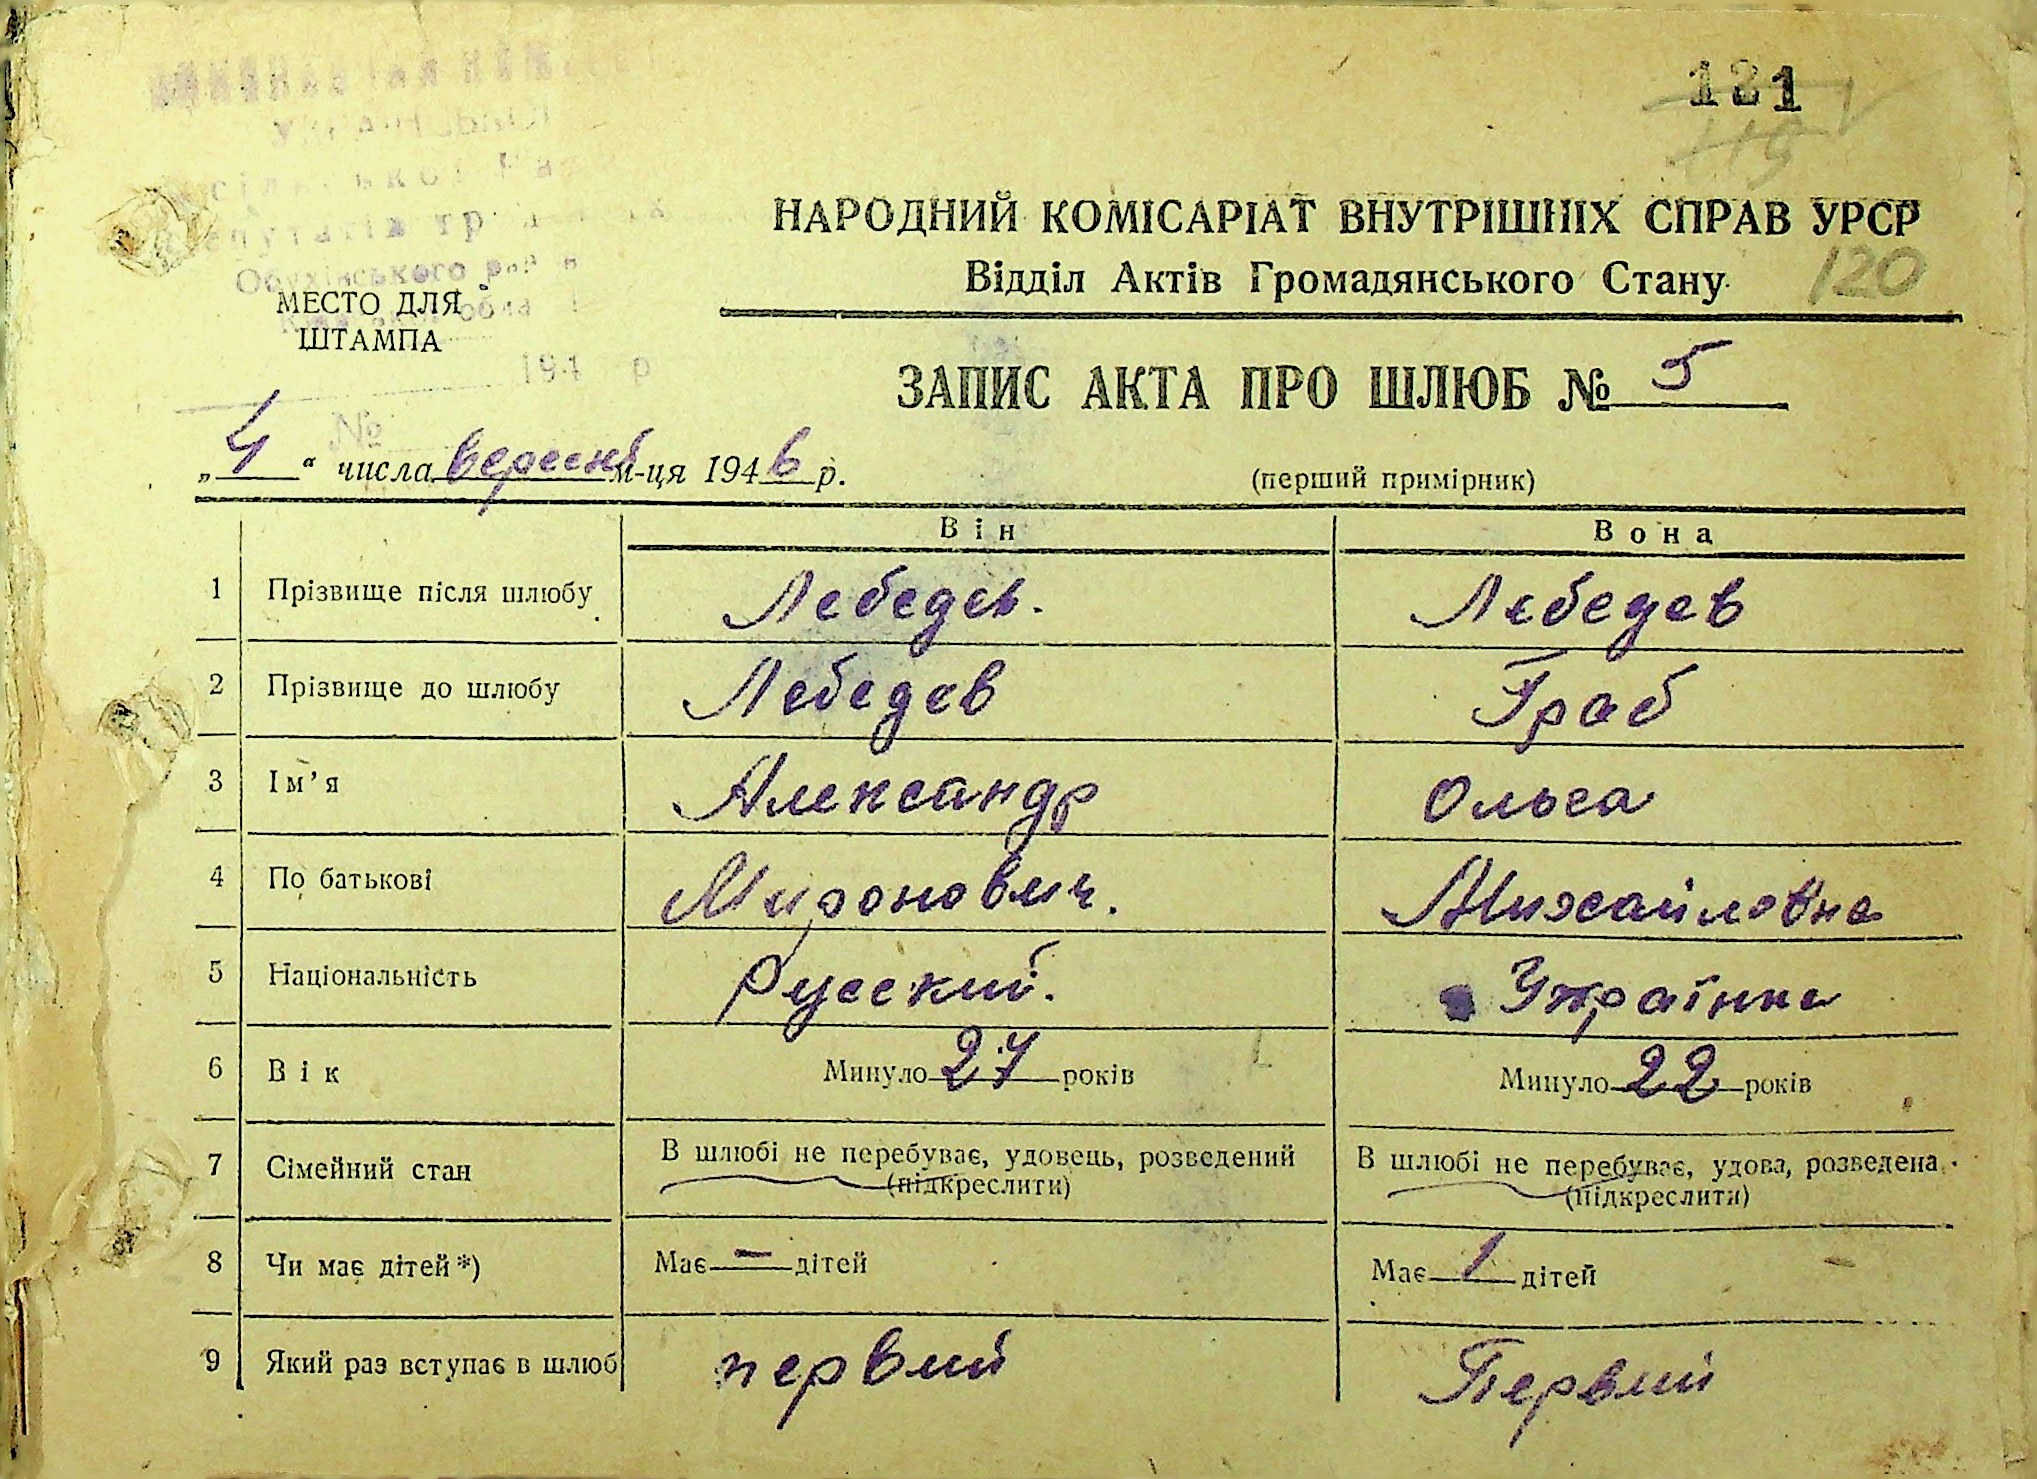 121
119
НАРОДНИЙ КОМІСАРІАТ ВНУТРІШНІХ СПРАВ УРСР
Відділ Актів Громадянського Стану
120
Обухівського
МЕСТО ДЛЯ
ШТАМПА
194 р
№
ЗАПИС АКТА ПРО ШЛЮБ № 5
„4“ числа вересня м-ця 1946 р.
(перший примірник)
Він Вона
1 Прізвище після шлюбу Лебедев. Лебедев
2 Прізвище до шлюбу Лебедев Граб
3 Ім’я Александр Ольга
4 По батькові Миронович. Михайловна
5 Національність Русский. Українка
6 Вік Минуло 27 років Минуло 22 років
7 Сімейний стан В шлюбі не перебуває, удовець, розведений В шлюбі не перебуває, удова, розведена
(підкреслити) (підкреслити)
8 Чи має дітей *) Має — дітей Має 1 дітей
9 Який раз вступає в шлюб первий Первий